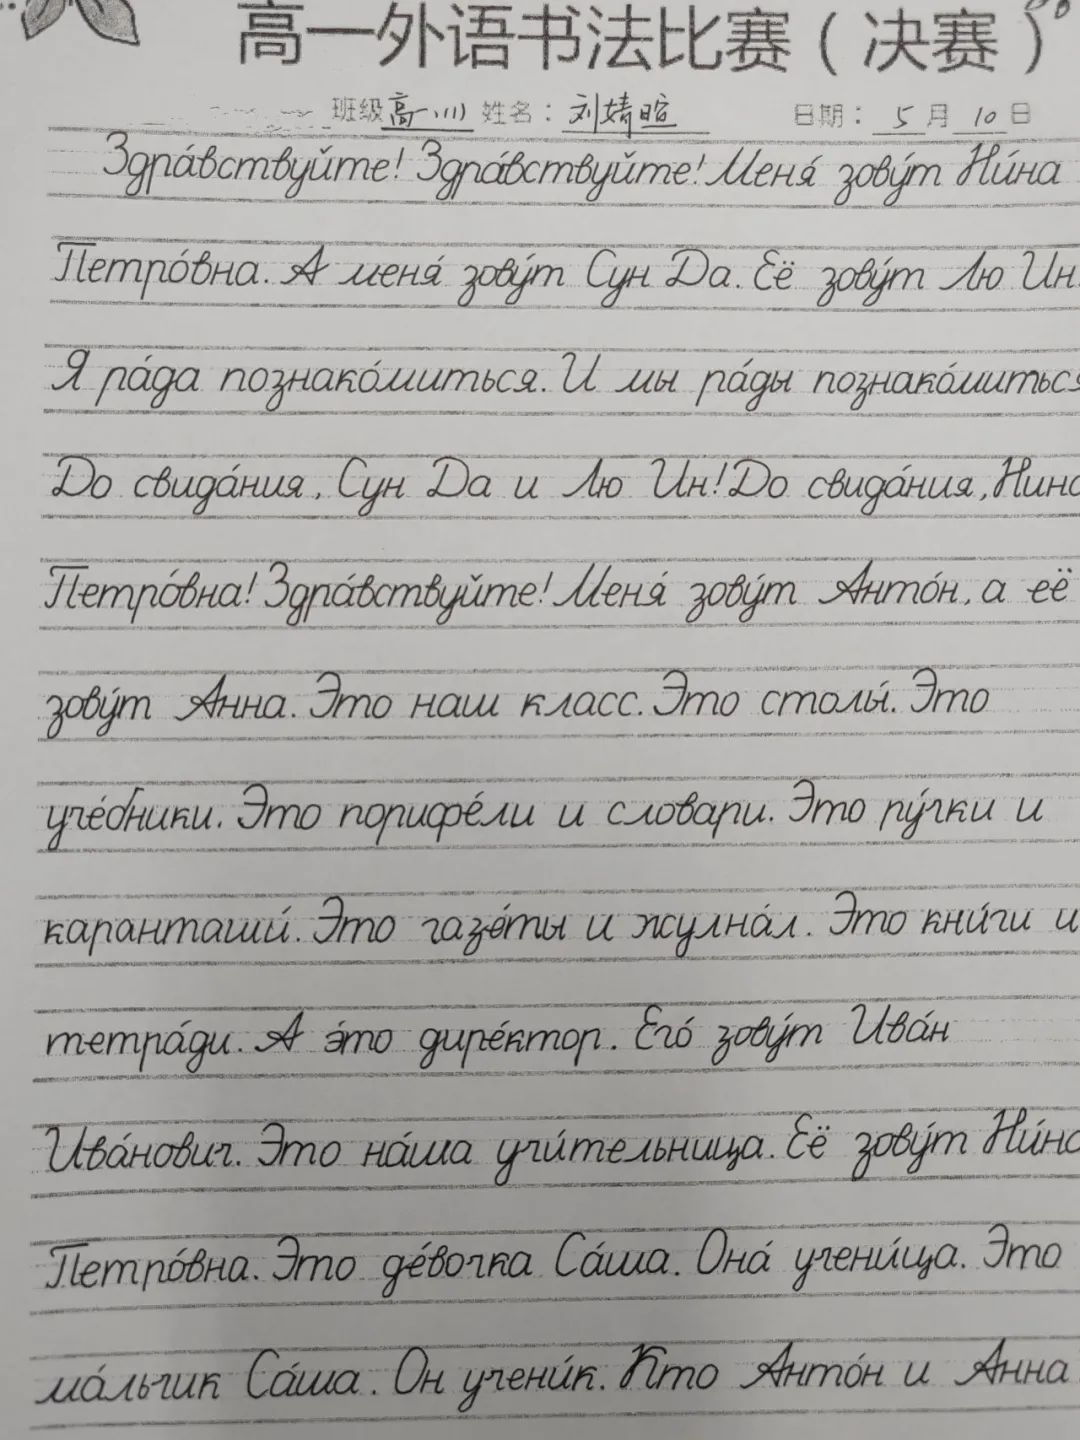 高一外语书法比赛（决赛）
班级高一 姓名：刘婧暄 日期：5月10日
Здра́вствуйте! Здра́вствуйте! Меня́ зову́т Ни́на
Петро́вна. А меня́ зову́т Сун Да. Её зову́т Лю Ин.
Я ра́да познако́миться. И мы ра́ды познако́миться
До свида́ния, Сун Да и Лю Ин! До свида́ния, Нина
Петро́вна! Здра́вствуйте! Меня́ зову́т Анто́н, а её
зову́т Анна. Это наш класс. Это столы́. Это
уче́бники. Это порифе́ли и словари. Это ру́чки и
каранташи́. Это газе́ты и жулна́л. Это кни́ги и
тетра́ди. А э́то дире́ктор. Его́ зову́т Ива́н
Ива́нович. Это на́ша учи́тельница. Её зову́т Ни́на
Петро́вна. Это де́вочка Са́ша. Она́ учени́ца. Это
ма́льчик Са́ша. Он учени́к. Кто Анто́н и Анна